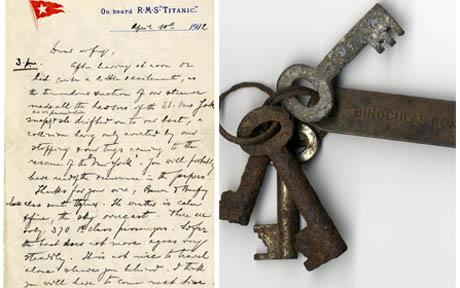 On board R·M·S "TITANIC."
April 10th 1912
3 pm.
After leaving at noon
had quite a little excitement, as
the tremendous suction of our steamer
made all the hawsers of the SS. New York
snap
drifted on to our boat, a
collision being only averted by our
stopping & our tugs coming to the
rescue of the "New York". You will probably
have read the occurrence in the papers.
Thanks for your wire,
sent theirs. The weather is calm
& fine, the sky overcast. There are
only 370 1st class passengers. So far
the boat does not move & goes very
steadily. It is not nice to travel
alone & leave you behind. I think
you will have to come next time
BINOCULAR BO